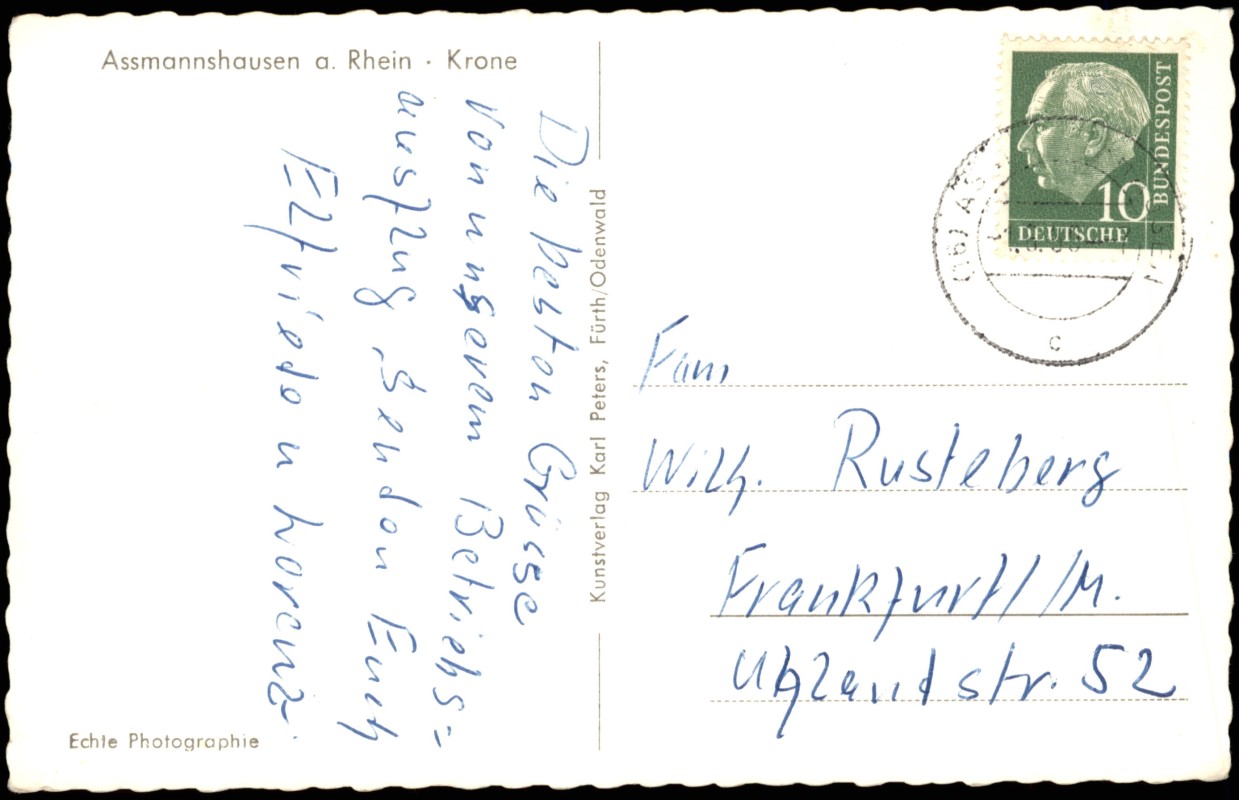 Assmannshausen a. Rhein · Krone
Die besten Grüsse
von unserem Betriebs=
ausflug senden Euch
Elfriede u Lorenz.
Echte Photographie
Kunstverlag Karl Peters, Fürth/Odenwald
10
DEUTSCHE
BUNDESPOST
(16) AS
c
Fam,
Wilh. Rusteberg
Frankfurt/M.
Uhlandstr. 52